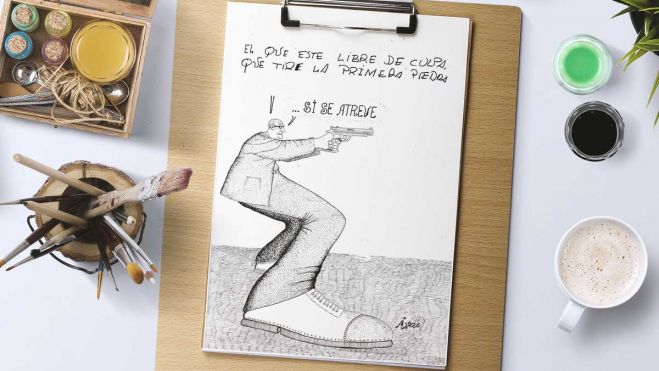 EL QUE ESTE LIBRE DE CULPA,
QUE TIRE LA PRIMERA PIEDRA
...SI SE ATREVE